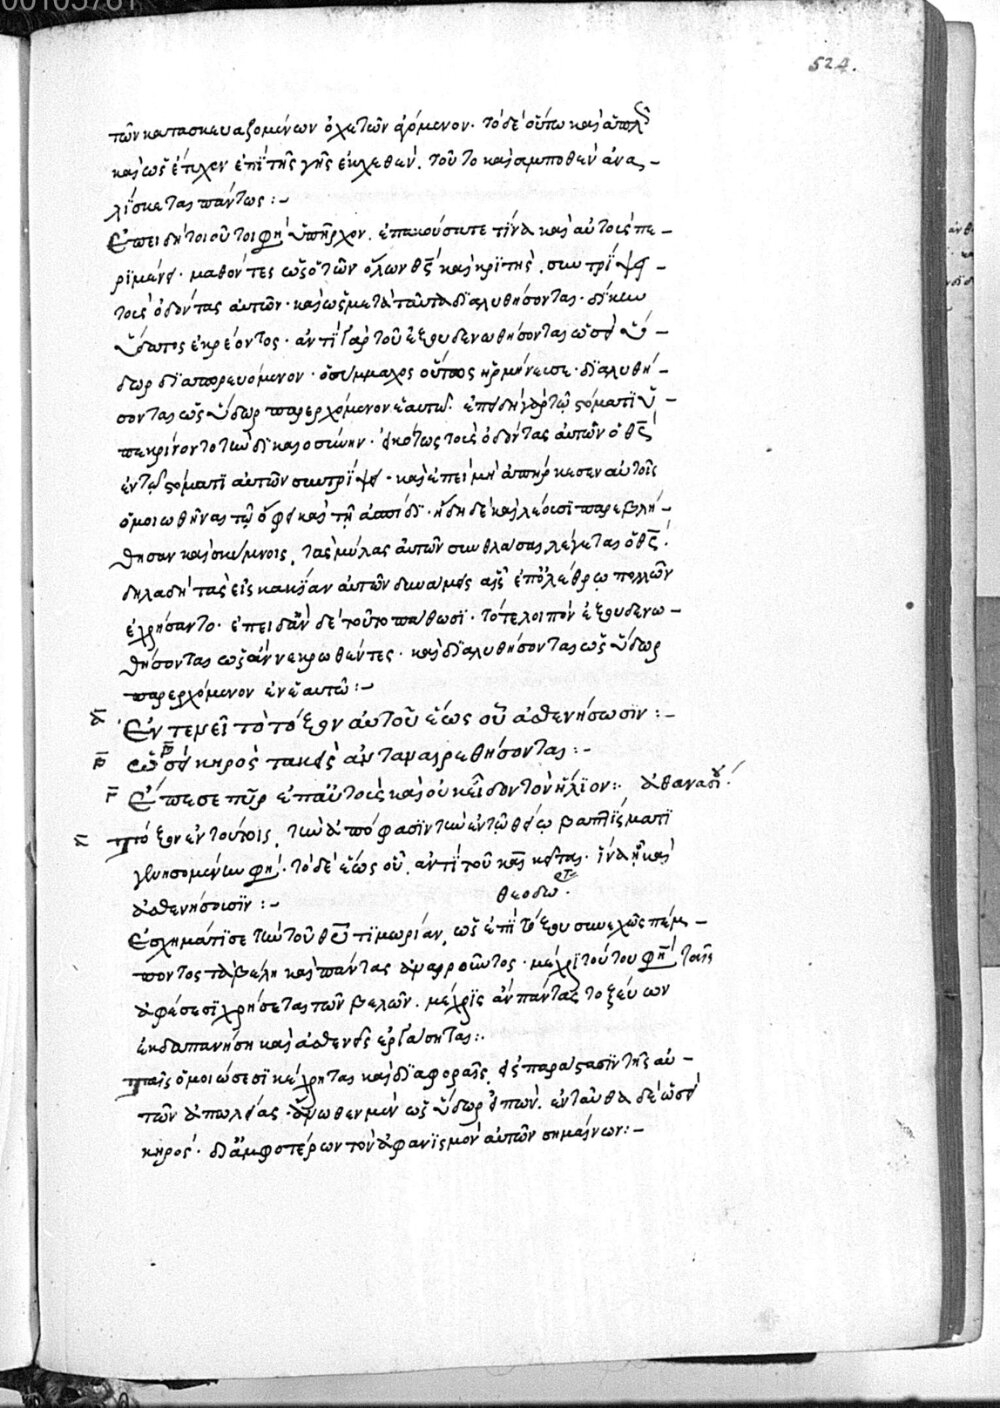 00105781
524.
τῶν κατασκευαζομένων ὀχετῶν φερόμενον· τὸ δὲ οὕπω καὶ ἁπλ
καὶ ὡς ἔτυχεν ἐπὶ τῆς γῆς ἐκχεθὲν, τοῦτο καὶ ἀμποθὲν ἀνα-
λίσκεται πάντως:-
Ἐπειδὴ τοιοῦτοι φη ὑπῆρχον, ἐπακούσατε τίνα καὶ αὐτοὶς πε-
ριμένει· μαθόντες ὡς ὁ τῶν ὅλων θς καὶ κριτὴς, συντρίψει
τοὺς ὀδόντας αὐτῶν· καὶ ὡς μετὰ ταῦτα διαλυθήσονται· δίκην
ὕδατος ἐκρέοντος· ἀντὶ γὰρ τοῦ ἐξουδενωθήσονται ὡσεὶ ὕ-
δωρ διαπορευόμενον· ὁ σύμμαχος οὕτως ἡρμήνευσε· διαλυθή-
σονται ὡς ὕδωρ παρερχόμενον ἑαυτῷ· ἐπειδὴ γὰρ τῷ στόματι ὑ-
πεκρίνοντο τὴν δικαιοσύνην· εἰκότως τοὺς ὀδόντας αὐτῶν ὁ θς
ἐν τῷ στόματι αὐτῶν συντρίψει· καὶ ἐπεὶ μὴ ἀπήρκεσεν αὐτοῖς
ὁμοιωθῆναι τῷ ὄφει καὶ τῇ ἀσπίδι· ἤδη δὲ καὶ λέουσι παρεβλή-
θησαν καὶ σκύμνοις, τὰς μύλας αὐτῶν συνθλάσαι λέγεται ὁ θς·
δηλαδὴ τὰς εἰς κακίαν αὐτῶν δυνάμεις αἷς ἐπ' ὀλέθρῳ πολλῶν
ἐχρήσαντο· ἐπειδὰν δὲ τοῦτο πάθωσι· τὸ τελοιπὸν ἐξουδενω-
θήσονται ὡς ἂν νεκρωθέντες· καὶ διαλυθήσονται ὡς ὕδωρ
παρερχόμενον ἐν ἑαυτῶ:-
Ἐντενεῖ τὸ τόξον αὐτοῦ ἕως οὗ ἀσθενήσωσιν:-
β Ὡσεὶ κηρὸς τακεὶς ἀνταναιρεθήσονται:-
γ Ἔπεσε πῦρ ἐπ' αὐτοὺς καὶ οὐκ εἶδον τὸν ἥλιον:- ἀθανασί
Τόξον ἐν τούτοις, τὴν ἀπόφασιν τὴν ἐν τῷ θείῳ βαπτίσματι
γενησομένην φη· τὸ δὲ ἕως οὗ, ἀντὶ τοῦ κεῖται· ἵνα ἢ καὶ
ἀσθενήσουσιν:- θεοδω
Ἐσχημάτισε τὴν τοῦ θῦ τιμωρίαν, ὡς ἐπὶ τόξου συνεχῶς πέμ-
ποντος τὰ βέλη καὶ πάντας ἀναιροῦντος· μέχρι τούτου φη ταῖς
ἀφέσεσι χρήσεται τῶν βελῶν, μέχρις ἂν πάντας τοξεύων
ἐκδαπανήση καὶ ἀσθενεῖς ἐργάσηται:.
Ταῖς ὁμοιώσεσι κέχρηται καὶ διαφοραῖς, εἰς παράστασιν τῆς αὐ-
τῶν ἀπωλείας· ἄνωθεν μὲν ὡς ὕδωρ εἰπὼν, ἐνταῦθα δὲ ὡσεὶ
κηρός· δι' ἀμφοτέρων τὸν ἀφανισμὸν αὐτῶν σημαίνων:-